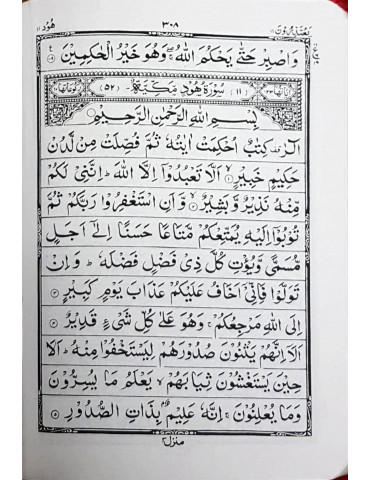 یعتذرون ۱۱ ۳۰۸ ھود ۱۱
وَاصْبِرْ حَتّٰى يَحْكُمَ اللّٰهُ ۖ وَهُوَ خَيْرُ الْحٰكِمِيْنَ
(۱۱) سُوْرَةُ هُوْدٍ مَّكِّيَّةٌ (۵۲)
بِسْمِ اللّٰهِ الرَّحْمٰنِ الرَّحِيْمِ
الٓرٰ كِتٰبٌ اُحْكِمَتْ اٰيٰتُهٗ ثُمَّ فُصِّلَتْ مِنْ لَّدُنْ
حَكِيْمٍ خَبِيْرٍ ۱ اَلَّا تَعْبُدُوْٓا اِلَّا اللّٰهَ ؕ اِنَّنِيْ لَكُمْ
مِّنْهُ نَذِيْرٌ وَّبَشِيْرٌ ۲ وَّاَنِ اسْتَغْفِرُوْا رَبَّكُمْ ثُمَّ
تُوْبُوْٓا اِلَيْهِ يُمَتِّعْكُمْ مَّتَاعًا حَسَنًا اِلٰٓى اَجَلٍ
مُّسَمًّى وَّيُؤْتِ كُلَّ ذِيْ فَضْلٍ فَضْلَهٗ ؕ وَاِنْ
تَوَلَّوْا فَاِنِّيْٓ اَخَافُ عَلَيْكُمْ عَذَابَ يَوْمٍ كَبِيْرٍ ۳
اِلَى اللّٰهِ مَرْجِعُكُمْ ۚ وَهُوَ عَلٰى كُلِّ شَيْءٍ قَدِيْرٌ ۴
اَلَآ اِنَّهُمْ يَثْنُوْنَ صُدُوْرَهُمْ لِيَسْتَخْفُوْا مِنْهُ ؕ اَلَا
حِيْنَ يَسْتَغْشُوْنَ ثِيَابَهُمْ ۙ يَعْلَمُ مَا يُسِرُّوْنَ
وَمَا يُعْلِنُوْنَ ۚ اِنَّهٗ عَلِيْمٌۢ بِذَاتِ الصُّدُوْرِ ۵
منزل ۳